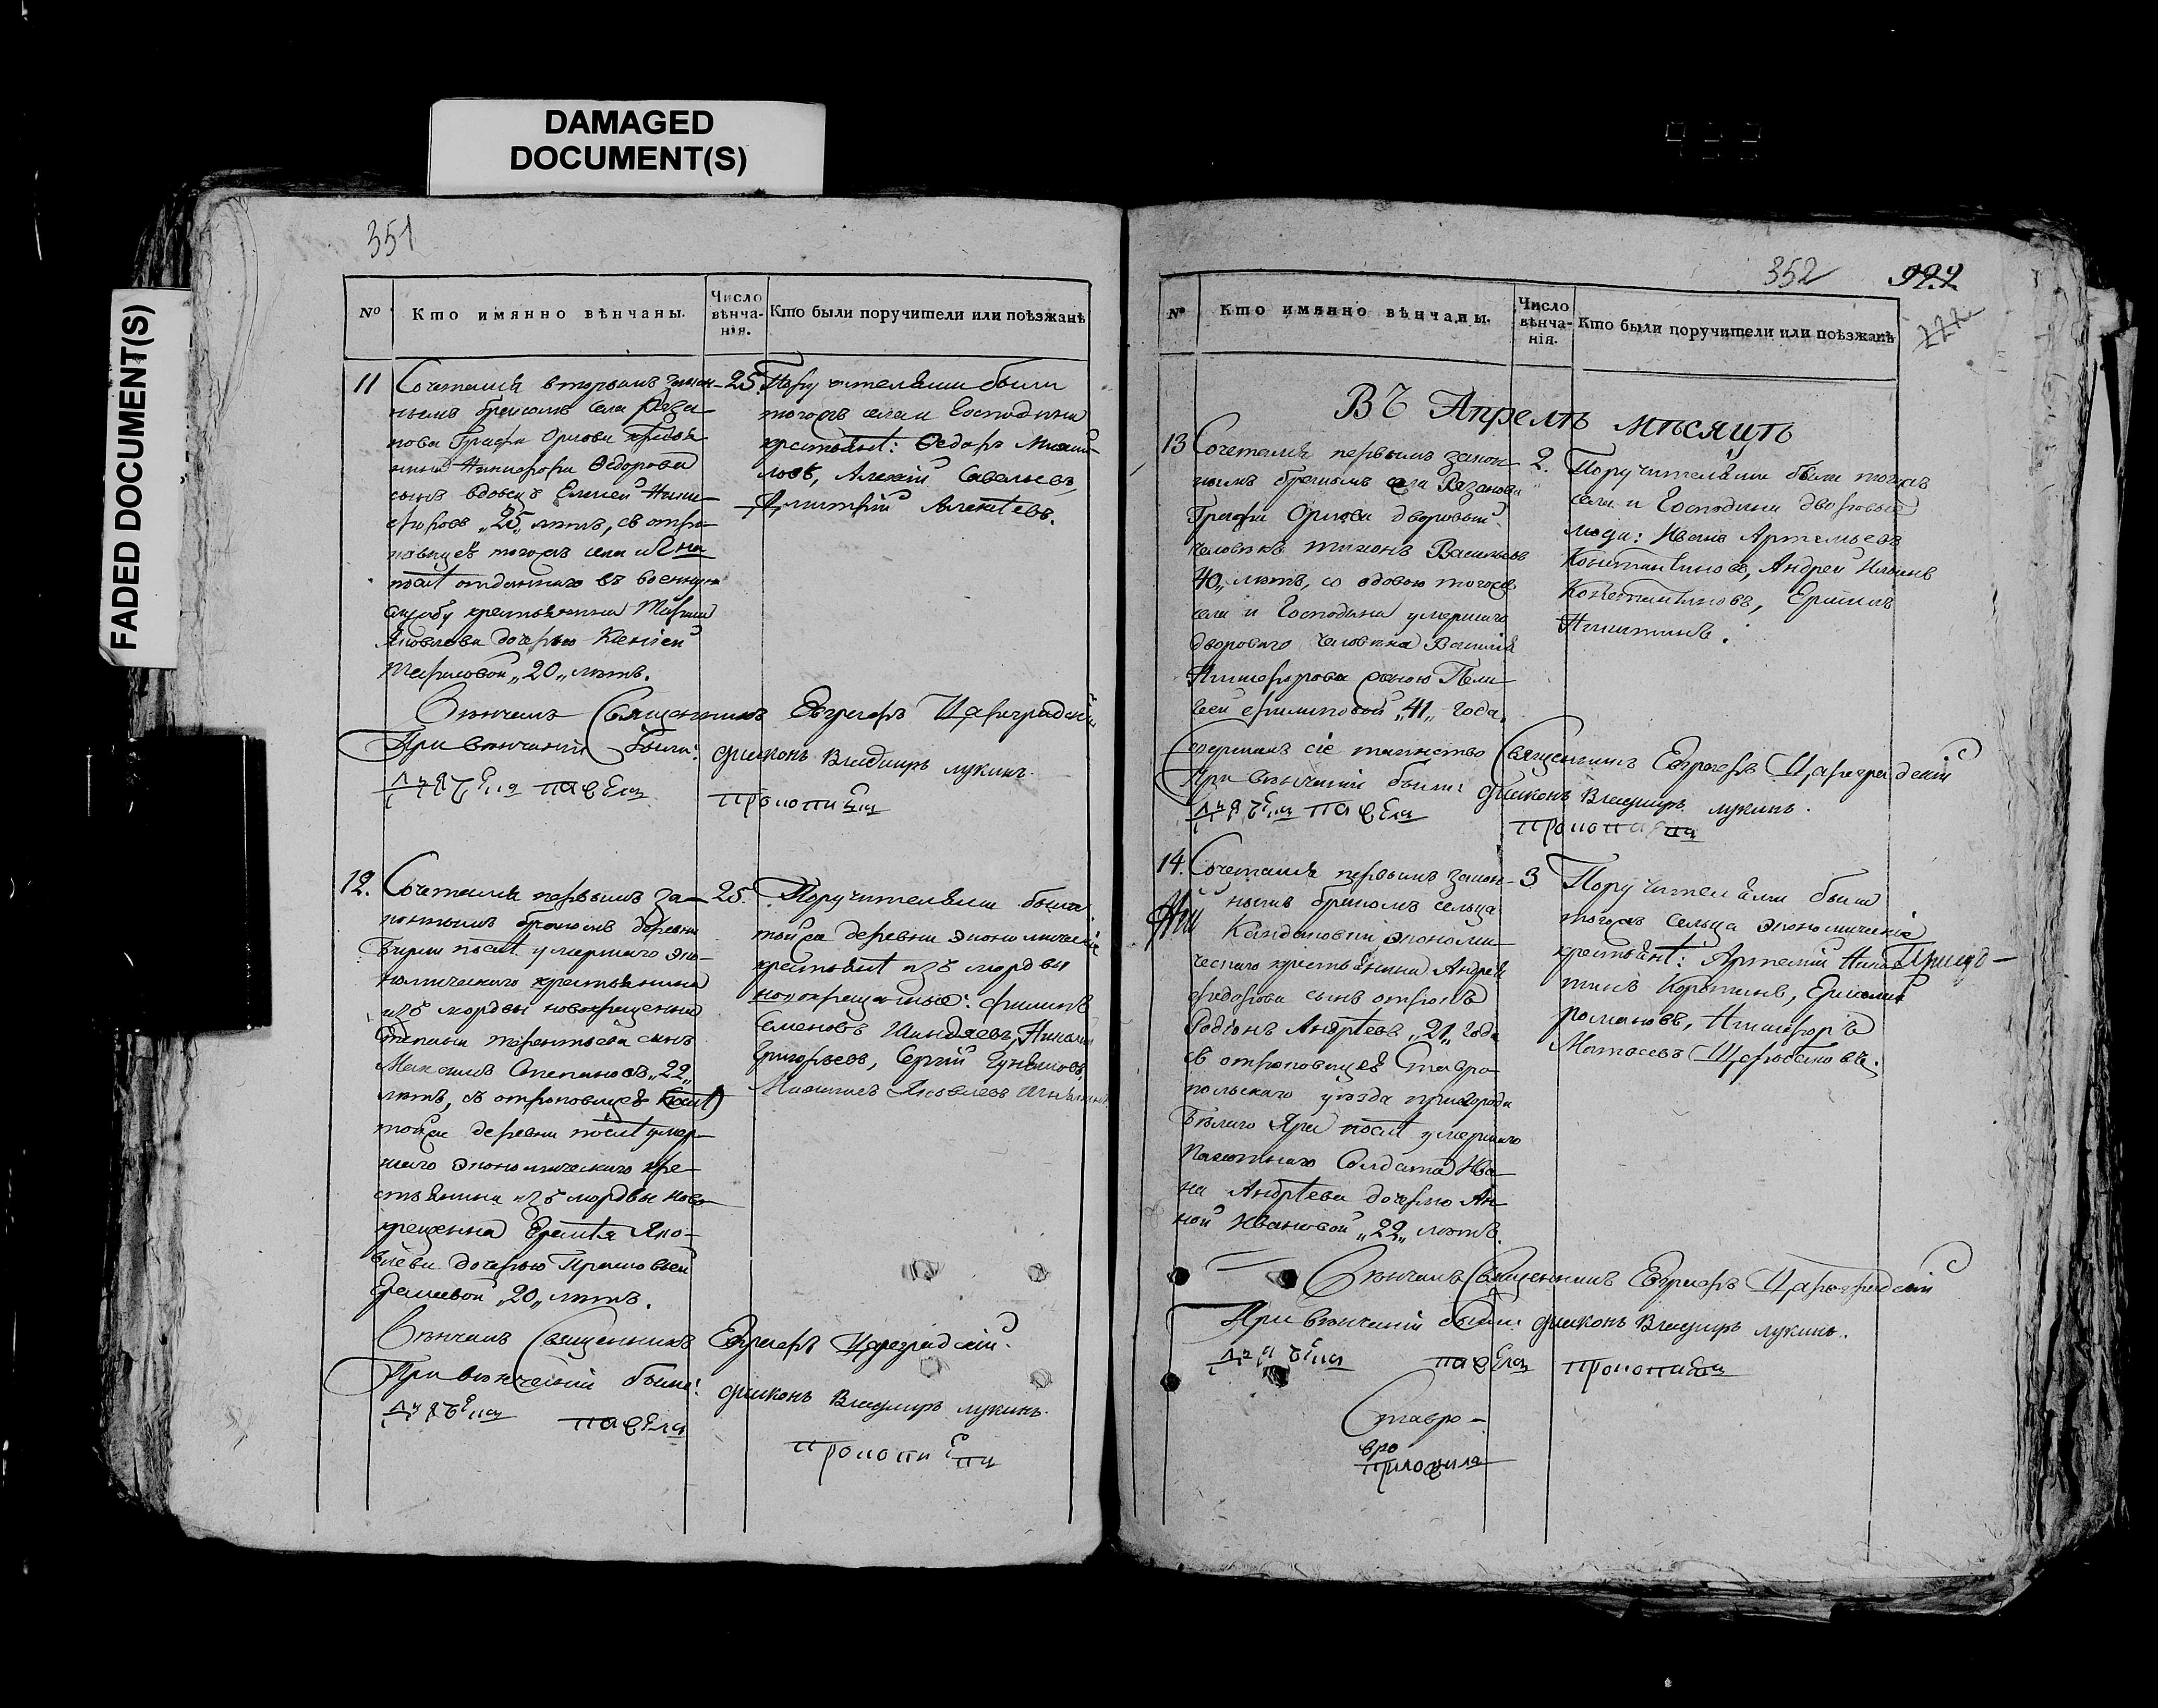 DAMAGED
DOCUMENT(S)
FADED DOCUMENT(S)
351
№
Кто имянно вѣнчаны.
Число вѣнча-
нія.
Кто были поручители или поѣзжанѣ
11 Сочетался вторымъ закон-
нымъ бракомъ села Ряза-
нова Графа Орлова
Никифора Ѳедорова
сынъ вдовецъ Елисей Ники-
форовъ „25„ лѣтъ, съ отро-
ковицеѣ тогожъ села
послѣ отданнаго въ военную
службу крестьянина
Яковлева дочерью Ксеніей
„20„ лѣтъ.
25.
Поручителями были
тогожъ села и Господина
крестьянѣ: Ѳедоръ Михай-
ловъ, Алексѣй Савельевъ,
Дмитрій Алексѣевъ.
Вѣнчалъ Священникъ Евграфъ Цареградскій
При вѣнчаніи были: диаконъ Владимиръ лукинъ.
12. Сочетался первымъ за-
коннымъ бракомъ деревни
послѣ умершаго эко-
номическаго крестьянина
изъ мордвы новокрещенна
Степана терентьева сынъ
Максимъ Степановъ „22„
лѣтъ, съ отроковицеѣ
тойже деревни послѣ умер-
шаго экономическаго кре-
стьянина изъ мордвы ново-
крещенна Еремѣя Яко-
влева дочерью Прасковьей
Еремѣевой „20„ лѣтъ.
25.
Поручителями были
тойже деревни экономическіе
крестьянѣ изъ мордвы
новокрещенные: филиппъ
Семеновъ Николай
Григорьевъ, Сергѣй
Яковлевъ
Вѣнчалъ Священникъ Евграфъ Цареградскій.
При вѣнчаніи были: диаконъ Владимиръ лукинъ.
352
№
Кто имянно вѣнчаны.
Число
вѣнча-
нія.
Кто были поручители или поѣзжанѣ
ВЪ Апрелѣ мѣсяцѣ
13 Сочетался первымъ закон-
нымъ бракомъ села Рязанова
Графа Орлова дворовый
человѣкъ тихонъ Васильевъ
„40„ лѣтъ, со вдовою тогожъ
села и Господина умершаго
двороваго человѣка Василія
Никифорова женою Пела-
геей филиповой „41„ года.
2.
Поручителями были тогожъ
села и Господина дворовые
люди: Иванъ Артемьевъ
Константиновъ, Андрей Ильинъ
Константиновъ, Ермилъ
Никитинъ.
совершалъ сіе таинство Священникъ Евграфъ Цареградскій
При вѣнчаніи были: диаконъ Владимиръ лукинъ.
14. Сочетался первымъ закон-
нымъ бракомъ сельца
Кандаковки экономи-
ческаго крестьянина Андрея
федорова сынъ отрокъ
Родіонъ Андрѣевъ „21„ года
съ отроковицеѣ Ставро-
польскаго уѣзда пригорода
Бѣлаго Яра послѣ умершаго
Пахотнаго Солдата Ива-
на Андрѣева дочерью Ан-
ной Ивановой „22„ лѣтъ.
3
Поручителями были
тогожъ сельца экономическіе
крестьянѣ: Артемій
Ермолай
романовъ, Никифоръ
Матвѣевъ
Вѣнчалъ Священникъ Евграфъ Цареградскій
При вѣнчаніи были: диаконъ Владимиръ лукинъ.
Ставро-